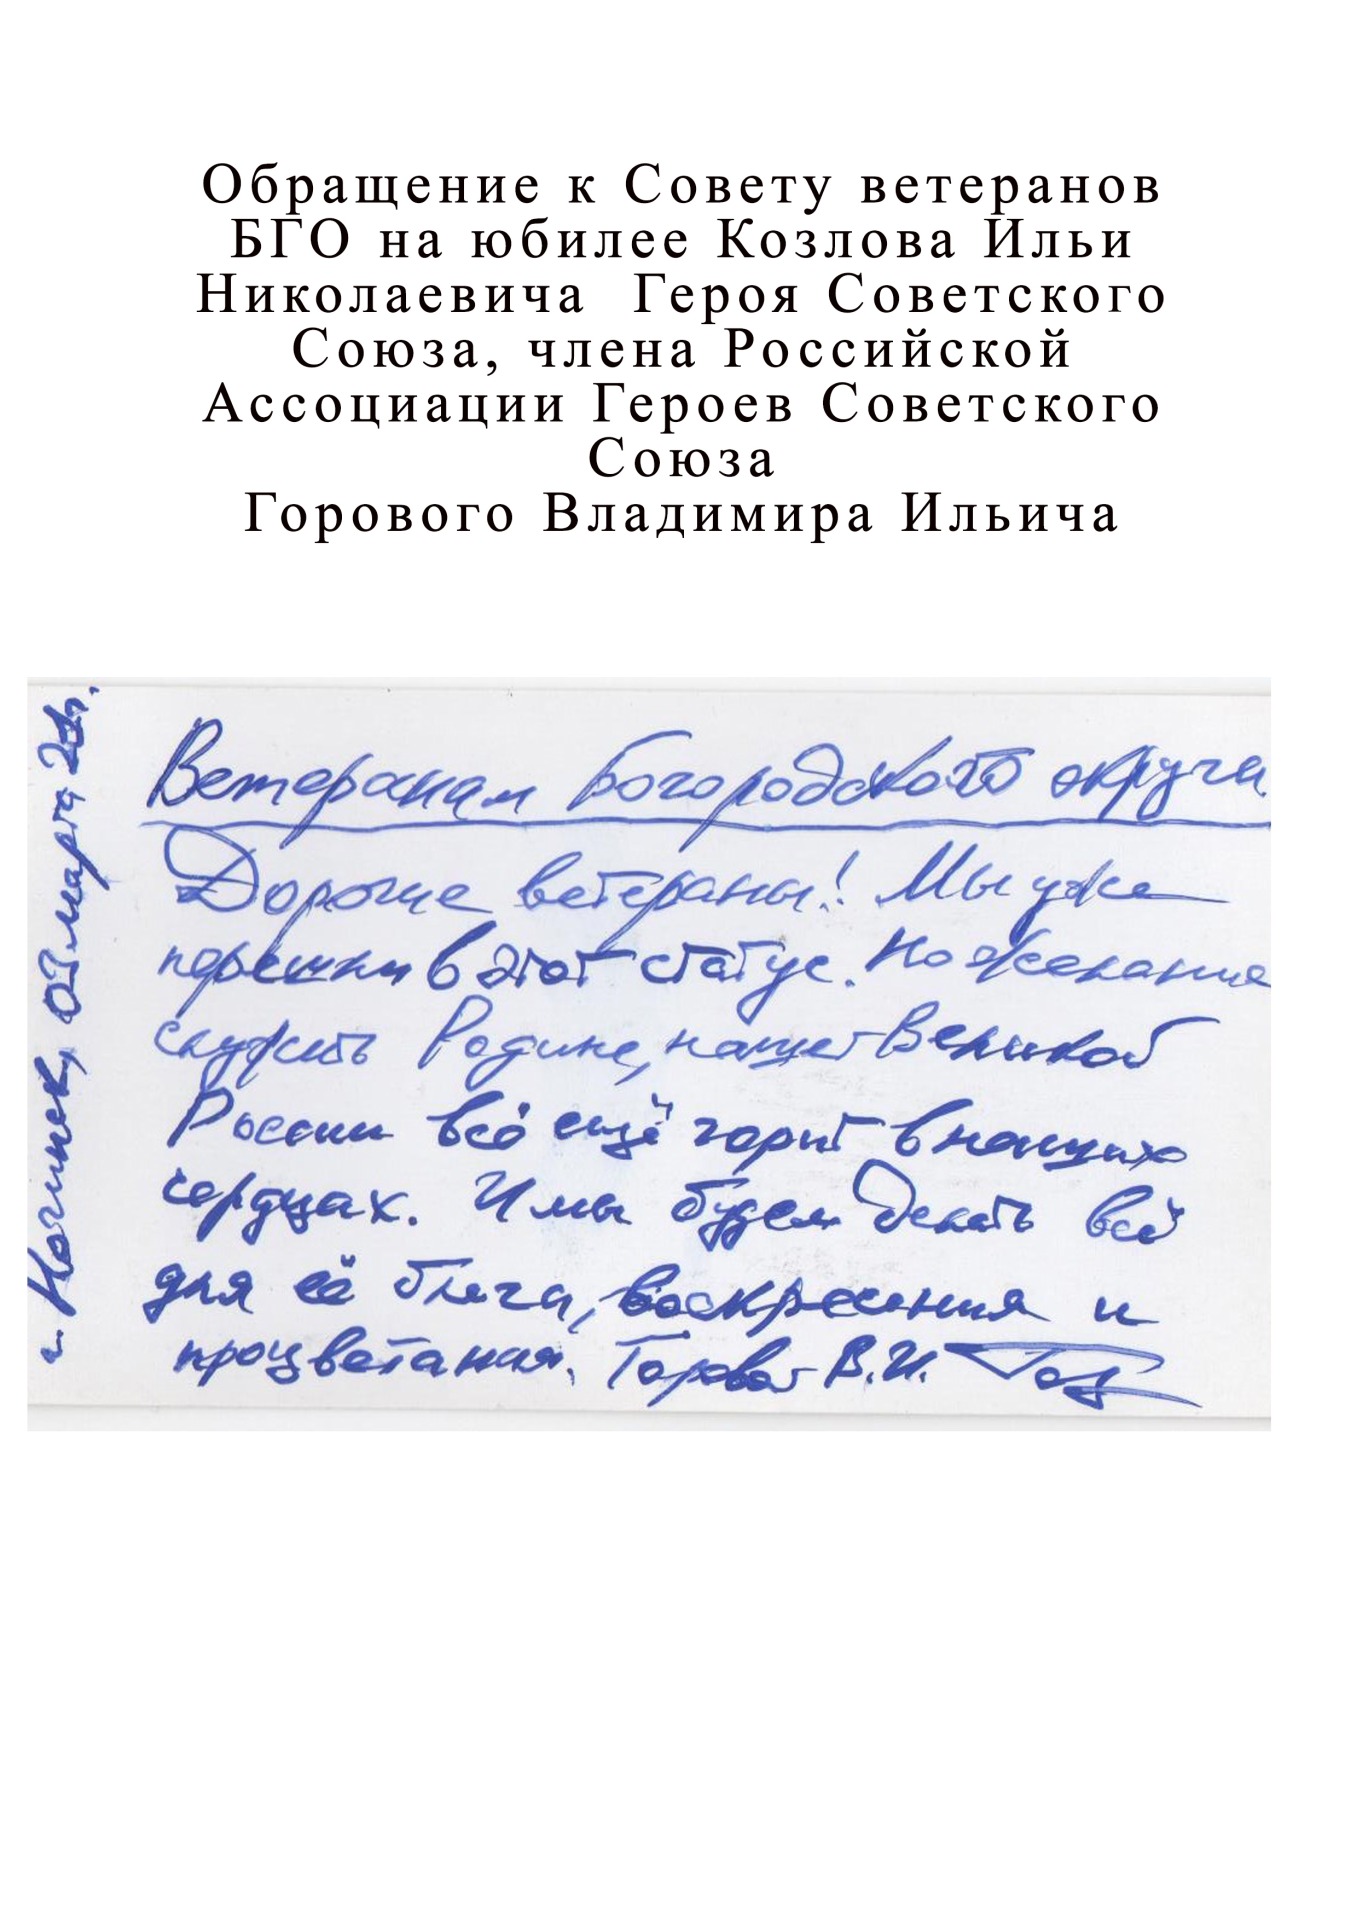 Обращение к Совету ветеранов
БГО на юбилее Козлова Ильи
Николаевича Героя Советского
Союза, члена Российской
Ассоциации Героев Советского
Союза
Горового Владимира Ильича
г. Ногинск, 03 марта
Ветеранам Богородского округа
Дорогие ветераны! Мы уже
перешли в этот статус. Но желание
служить Родине, нашей Великой
России всё ещё горит в наших
сердцах. И мы будем делать всё
для её блага, воскресения и
процветания. Горовой В.И.